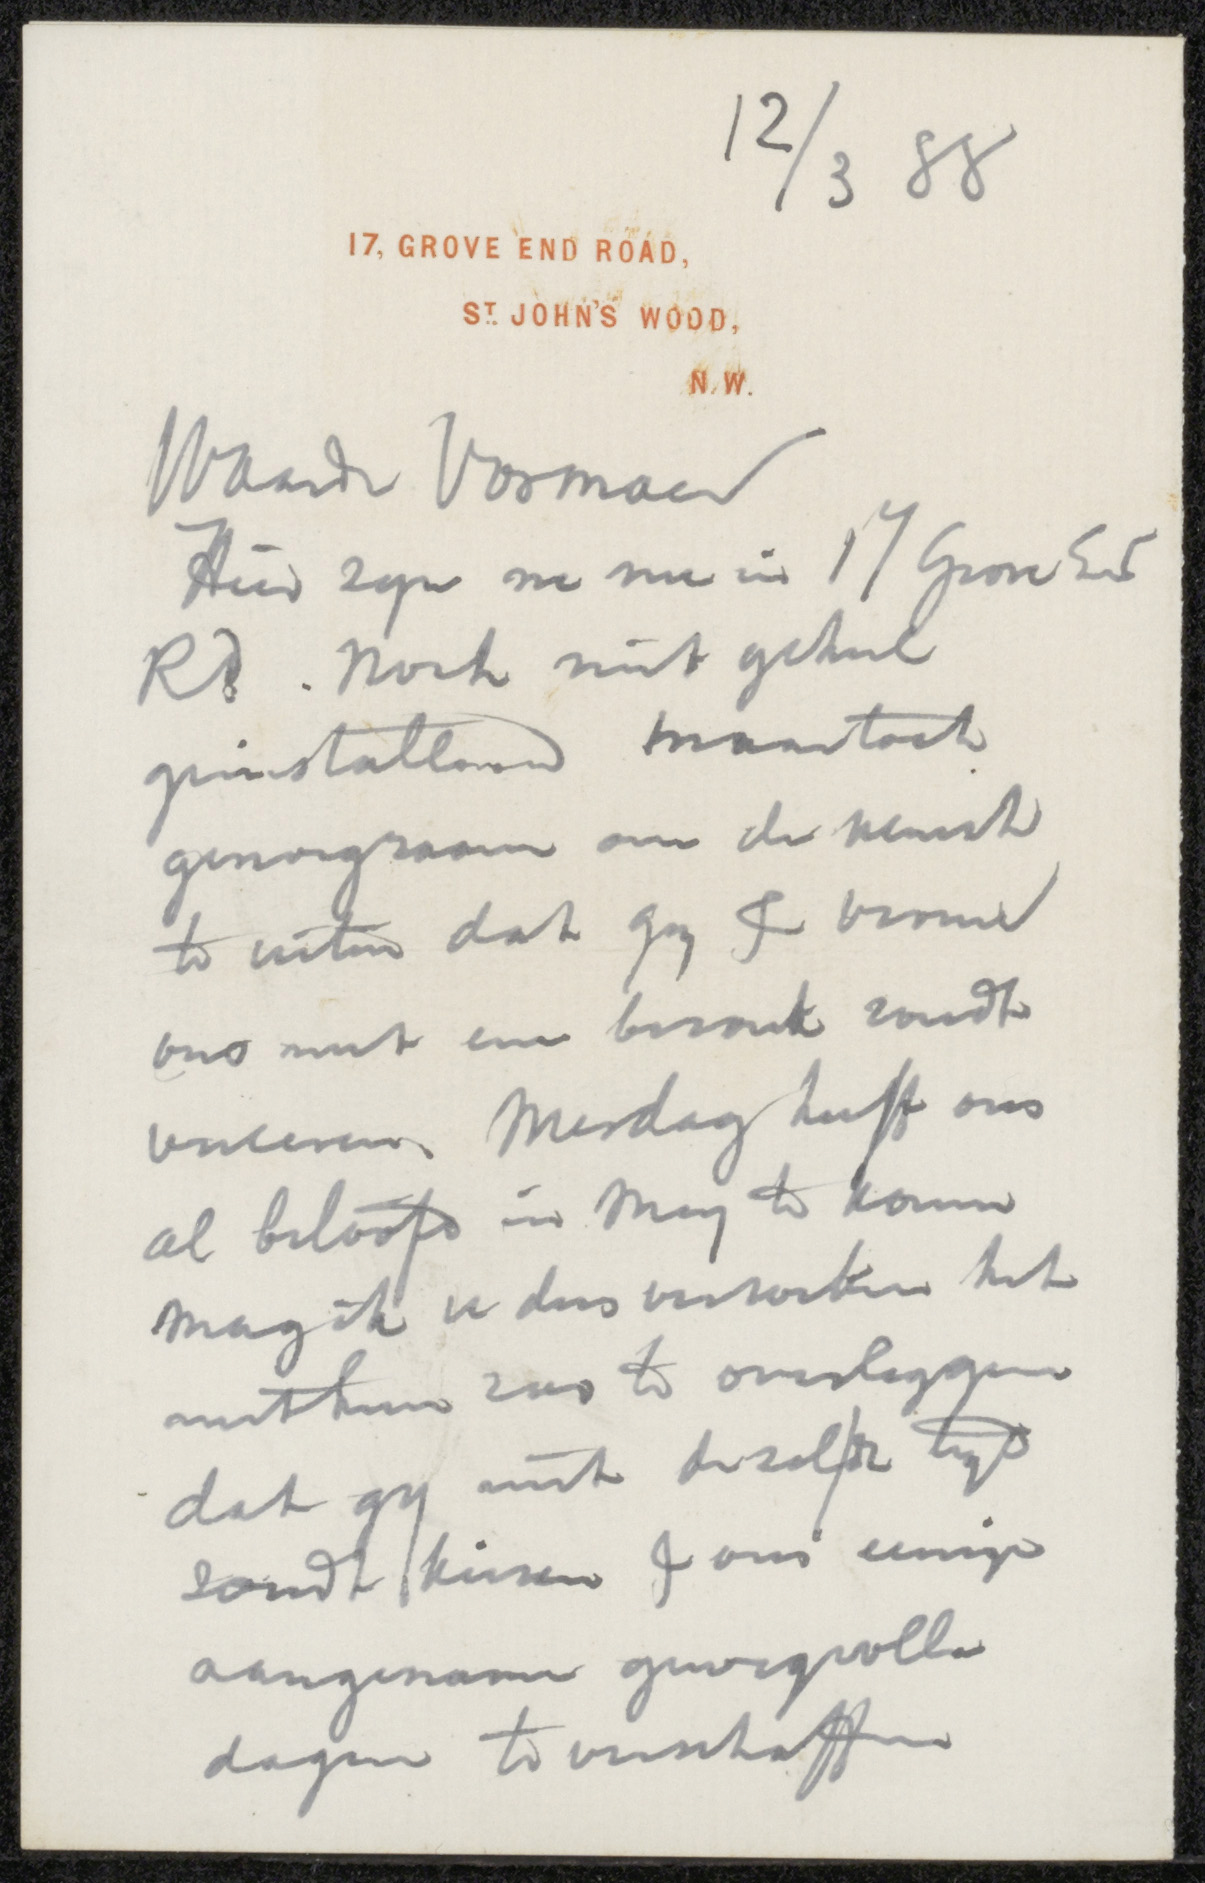 12/3 88
17, GROVE END ROAD,
ST. JOHN'S WOOD,
N.W.
Waarde Vosmaer
Hier zyn we nu in 17 Grove End
Rd. Noch niet geheel
geinstalleerd maar toch
genoegzaam om de wensch
te uiten dat gy & vrouw
ons met een bezoek zoudt
vereeren. Mesdag heeft ons
al beloofd in Mey te komen
mag ik u dus verzoeken het
met hem zoo te overleggen
dat gy niet dezelfde tyd
zoudt kiezen & ons eenige
aangename genoegvolle
dagen te verschaffen